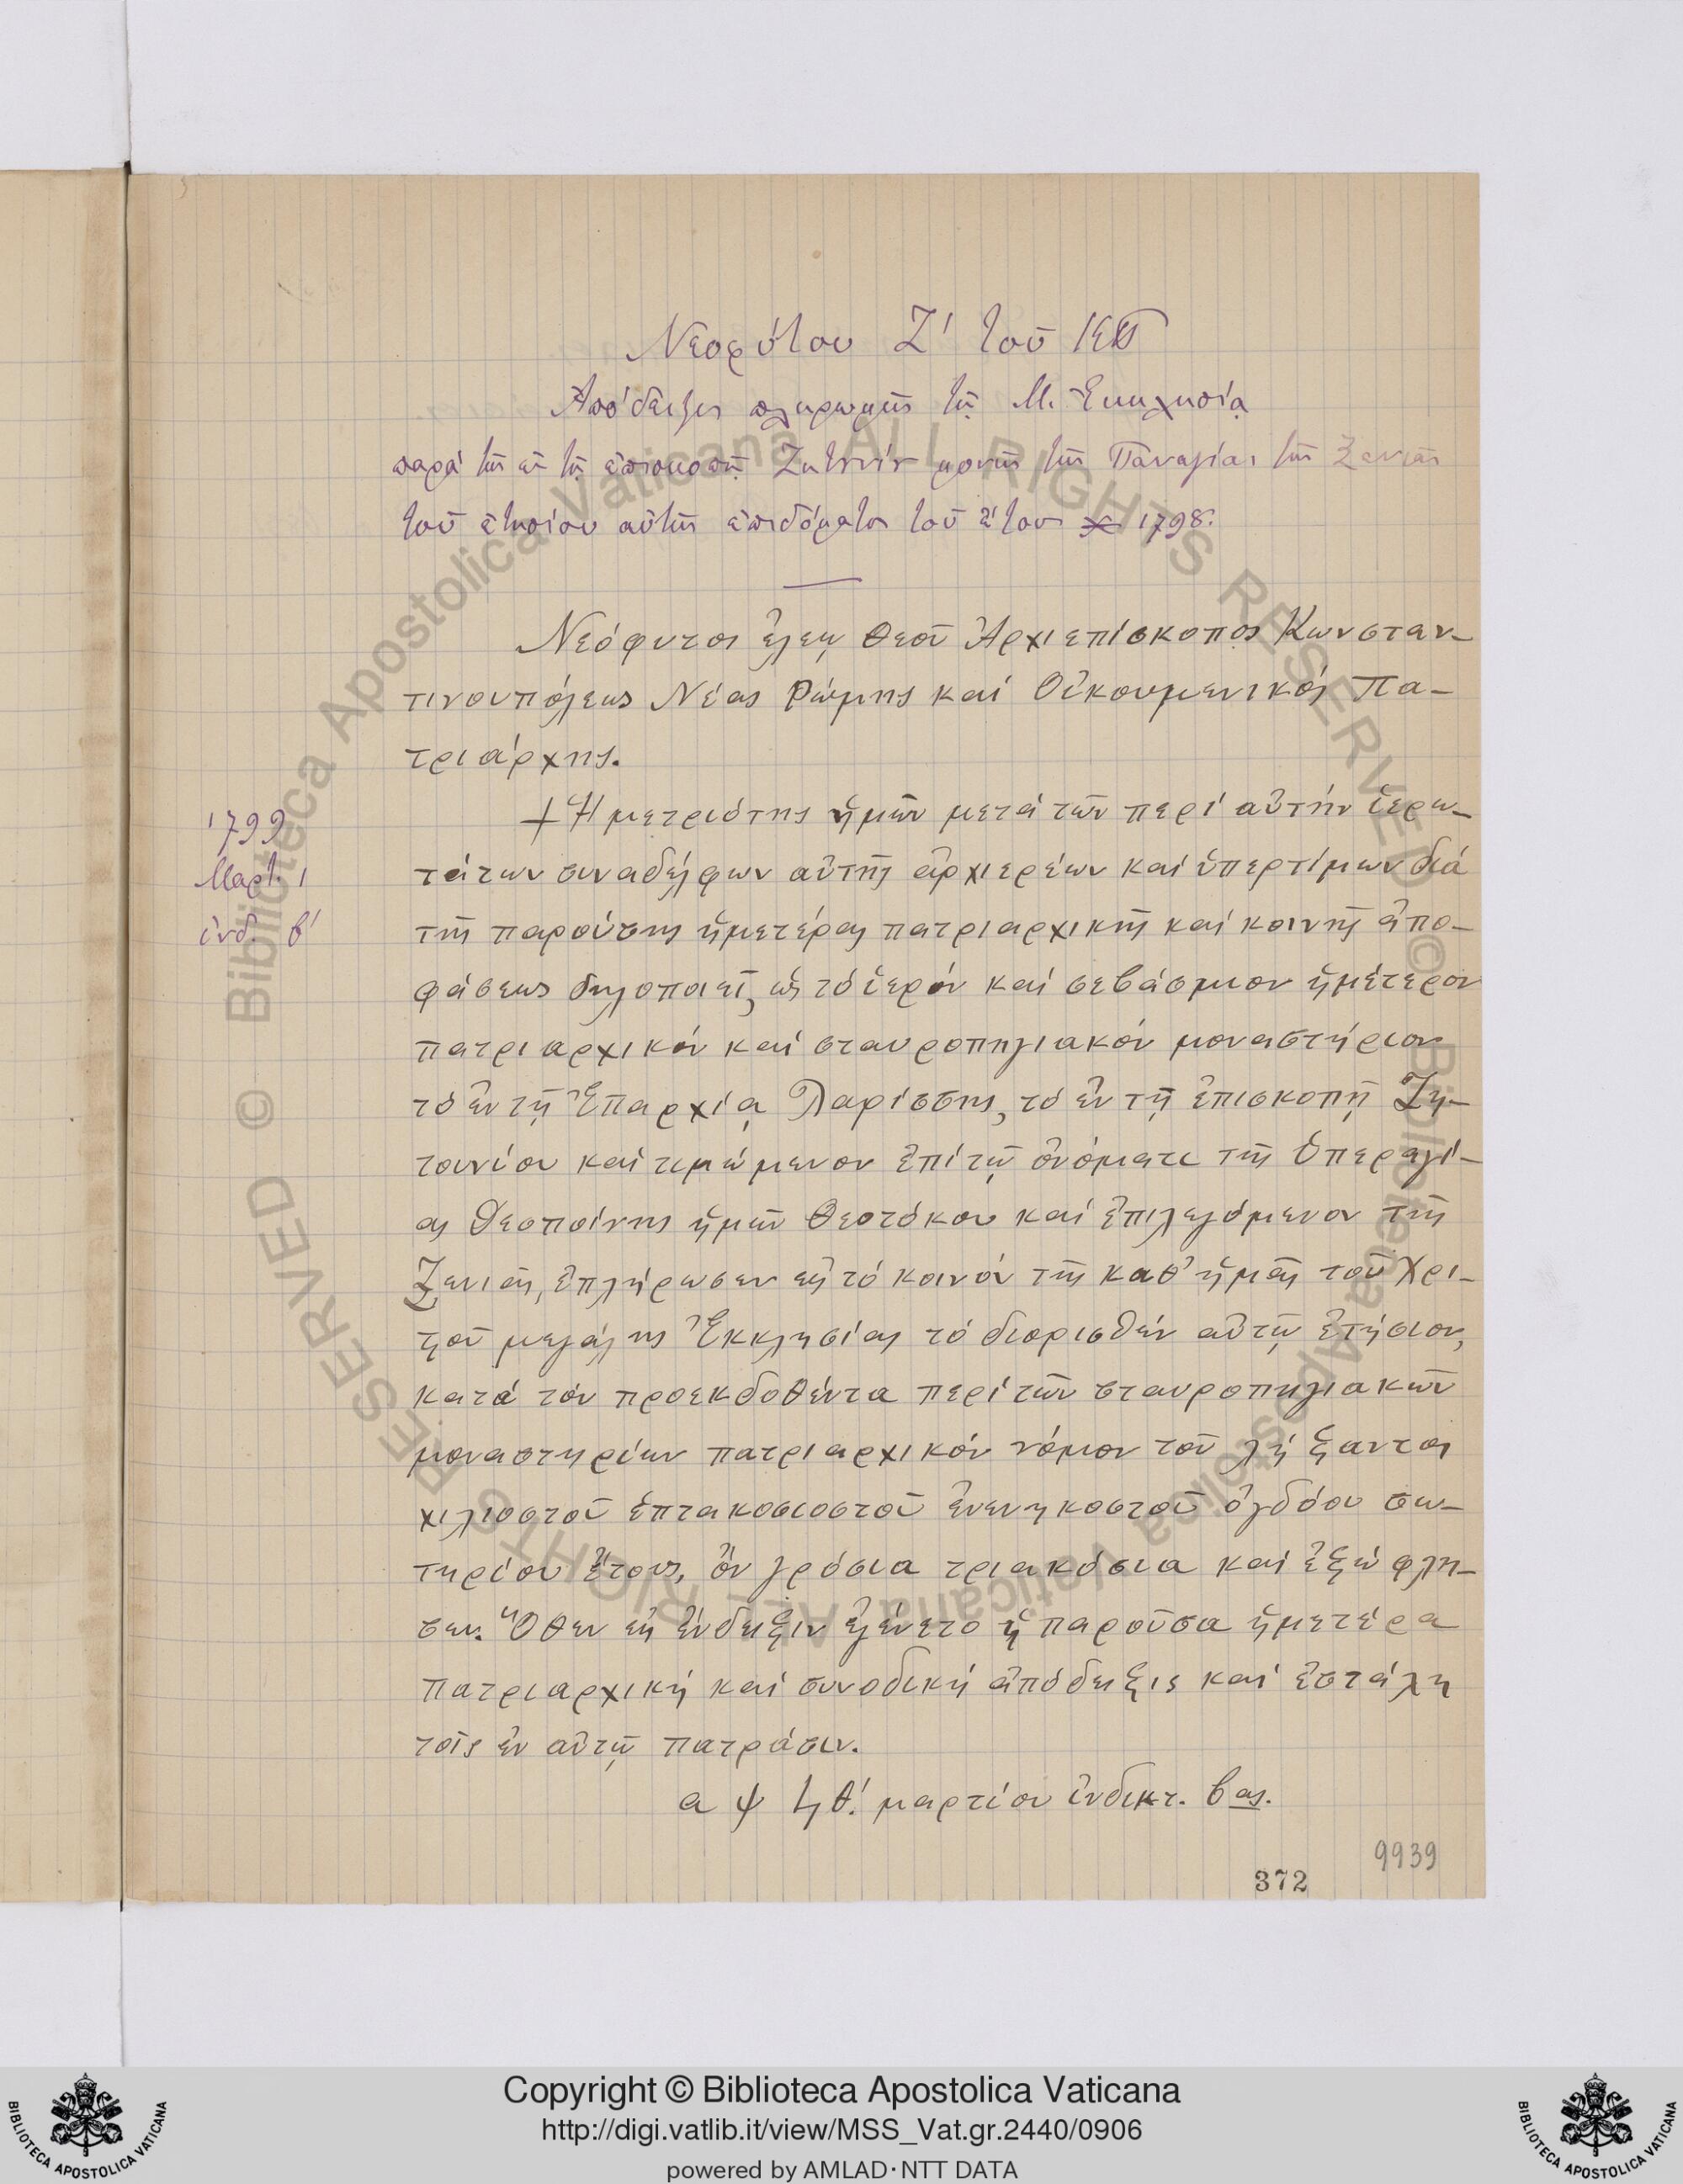 Νεοφύτου Ζ΄ τοῦ ΚΠ
Ἀπόδειξις πληρωμῆς τῇ Μ. Ἐκκλησίᾳ
παρά τῆς ἐν τῇ ἐπισκοπῇ Ζητουνίου μονῆς τῆς Παναγίας τῆς Ξενιᾶς
τοῦ ἐτησίου αὐτῆς ἐπιδόματος τοῦ ἔτους 1798.
Νεόφυτος ἐλέῳ Θεοῦ Ἀρχιεπίσκοπος Κωνσταν-
τινουπόλεως Νέας Ρώμης καί Οἰκουμενικός Πα-
τριάρχης.
1799
Μαρτ. 1
ἰνδ. β΄
+ Ἡ μετριότης ἡμῶν μετά τῶν περί αὐτήν ἱερω-
τάτων συναδέλφων αὐτῆς ἀρχιερέων καί ὑπερτίμων διά
τῆς παρούσης ἡμετέρας πατριαρχικῆς καί κοινῆς ἀπο-
φάσεως δηλοποιεῖ, ὡς τό ἱερόν καί σεβάσμιον ἡμέτερον
πατριαρχικόν καί σταυροπηγιακόν μοναστήριον
τό ἐν τῇ Ἐπαρχίᾳ Λαρίσσης, τό ἐν τῇ ἐπισκοπῇ Ζη-
τουνίου καί τιμώμενον ἐπί τῷ ὀνόματι τῆς Ὑπεραγί-
ας Δεσποίνης ἡμῶν Θεοτόκου καί ἐπιλεγόμενον τῆς
Ξενιᾶς, ἐπλήρωσεν εἰς τό κοινόν τῆς καθ' ἡμᾶς τοῦ Χρι-
ϛοῦ μεγάλης Ἐκκλησίας τό διορισθέν αὐτῷ ἐτήσιον,
κατά τόν προεκδοθέντα περί τῶν σταυροπηγιακῶν
μοναστηρίων πατριαρχικόν νόμον τοῦ λήξαντος
χιλιοστοῦ ἑπτακοσιοστοῦ ἐνενηκοστοῦ ὀγδόου σω-
τηρίου ἔτους, ὄν γρόσια τριακόσια καί ἐξώφλη-
σεν. Ὅθεν εἰς ἔνδειξιν ἐγένετο ἡ παροῦσα ἡμετέρα
πατριαρχική καί συνοδική ἀπόδειξις καί ἐστάλη
τοῖς ἐν αὐτῷ πατράσιν.
αψϟθ΄. μαρτίου ἰνδικτ. βας.
9939
372
Copyright © Biblioteca Apostolica Vaticana
http://digi.vatlib.it/view/MSS_Vat.gr.2440/0906
powered by AMLAD·NTT DATA
BIBLIOTECA APOSTOLICA VATICANA
BIBLIOTECA APOSTOLICA VATICANA
© Biblioteca Apostolica Vaticana ALL RIGHTS RESERVED
© Biblioteca Apostolica Vaticana ALL RIGHTS RESERVED